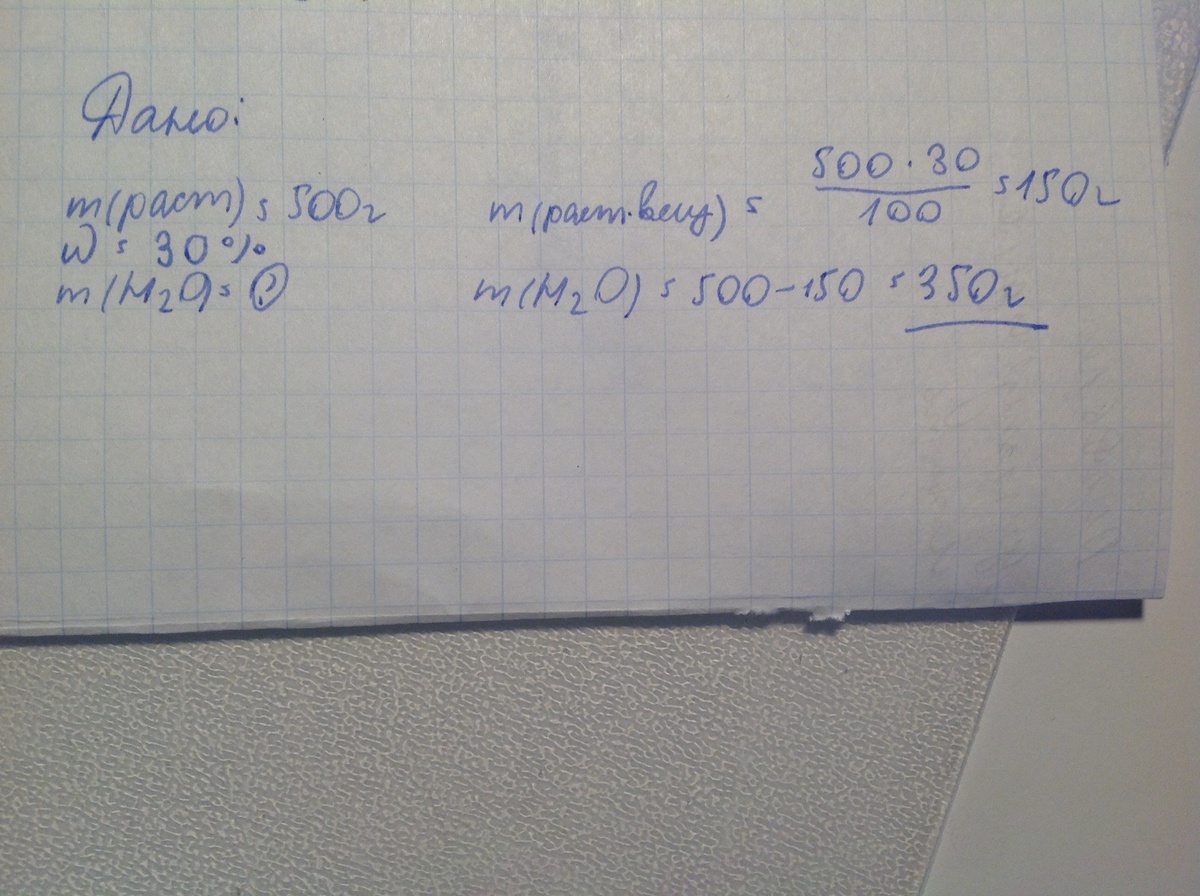 Дано:
m(раст) = 500г
w = 30%
m(H₂O) = ?
m(раст.вещ) = 500 · 30 / 100 = 150г
m(H₂O) = 500 - 150 = 350г